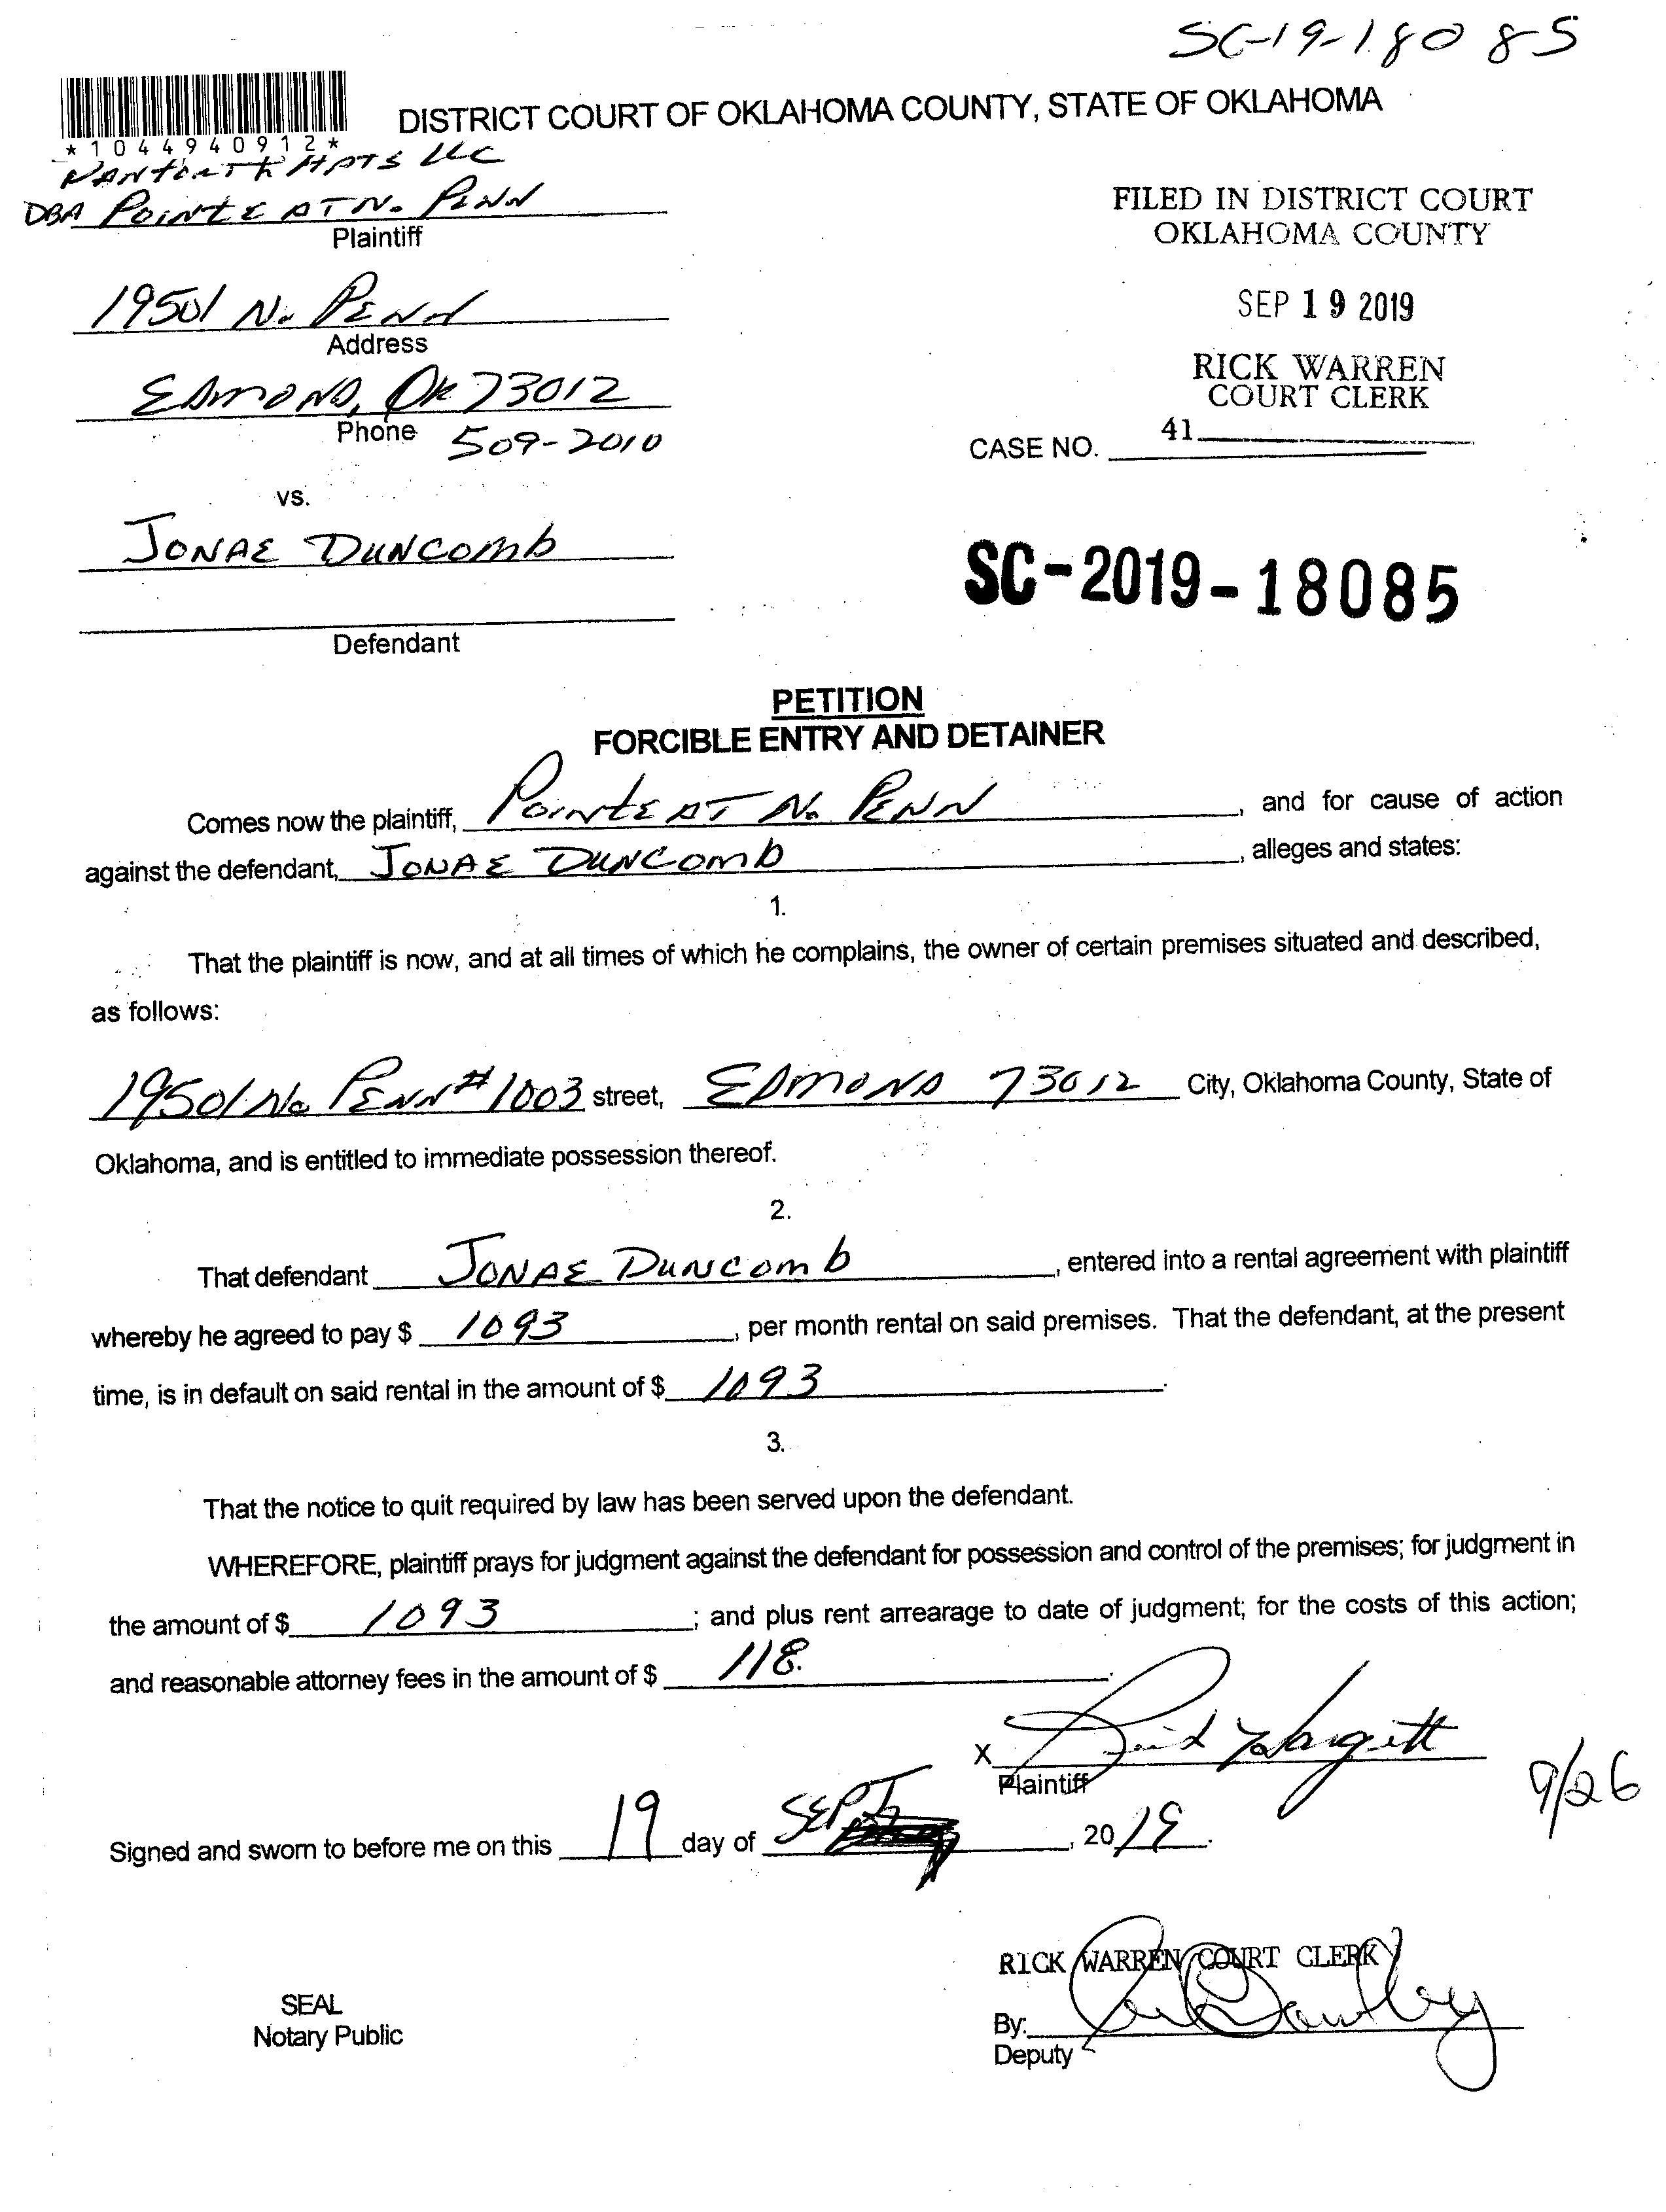 SC-19-18085
DISTRICT COURT OF OKLAHOMA COUNTY, STATE OF OKLAHOMA
*1044940912*
APTS LLC
DBA POINTE AT N. PENN
Plaintiff
FILED IN DISTRICT COURT
OKLAHOMA COUNTY
19501 N. PENN
Address
SEP 19 2019
EDMOND, OK 73012
Phone 509-2010
RICK WARREN
COURT CLERK
41
CASE NO.
vs.
JONAE DUNCOMB
SC-2019-18085
Defendant
PETITION
FORCIBLE ENTRY AND DETAINER
Comes now the plaintiff, POINTE AT N. PENN, and for cause of action
against the defendant, JONAE DUNCOMB, alleges and states:
1.
That the plaintiff is now, and at all times of which he complains, the owner of certain premises situated and described,
as follows:
19501 No PENN #1003 street, EDMOND 73012 City, Oklahoma County, State of
Oklahoma, and is entitled to immediate possession thereof.
2.
That defendant JONAE DUNCOMB, entered into a rental agreement with plaintiff
whereby he agreed to pay $ 1093, per month rental on said premises. That the defendant, at the present
time, is in default on said rental in the amount of $ 1093.
3.
That the notice to quit required by law has been served upon the defendant.
WHEREFORE, plaintiff prays for judgment against the defendant for possession and control of the premises; for judgment in
the amount of $ 1093; and plus rent arrearage to date of judgment; for the costs of this action;
and reasonable attorney fees in the amount of $ 118.
X Hargett
Plaintiff
9/26
Signed and sworn to before me on this 19 day of SEPT, 2019.
RICK WARREN COURT CLERK
SEAL
Notary Public
By:
Deputy